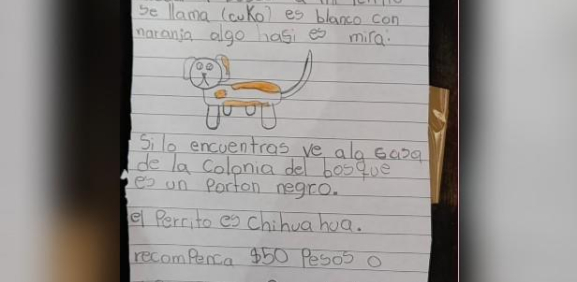 se llama (cuko) es blanco con
naranja algo hasi es mira:
Si lo encuentras ve ala casa
de la Colonia del bosque
es un Porton negro.
el Perrito es chihua hua.
recomPenca $50 Pesos o